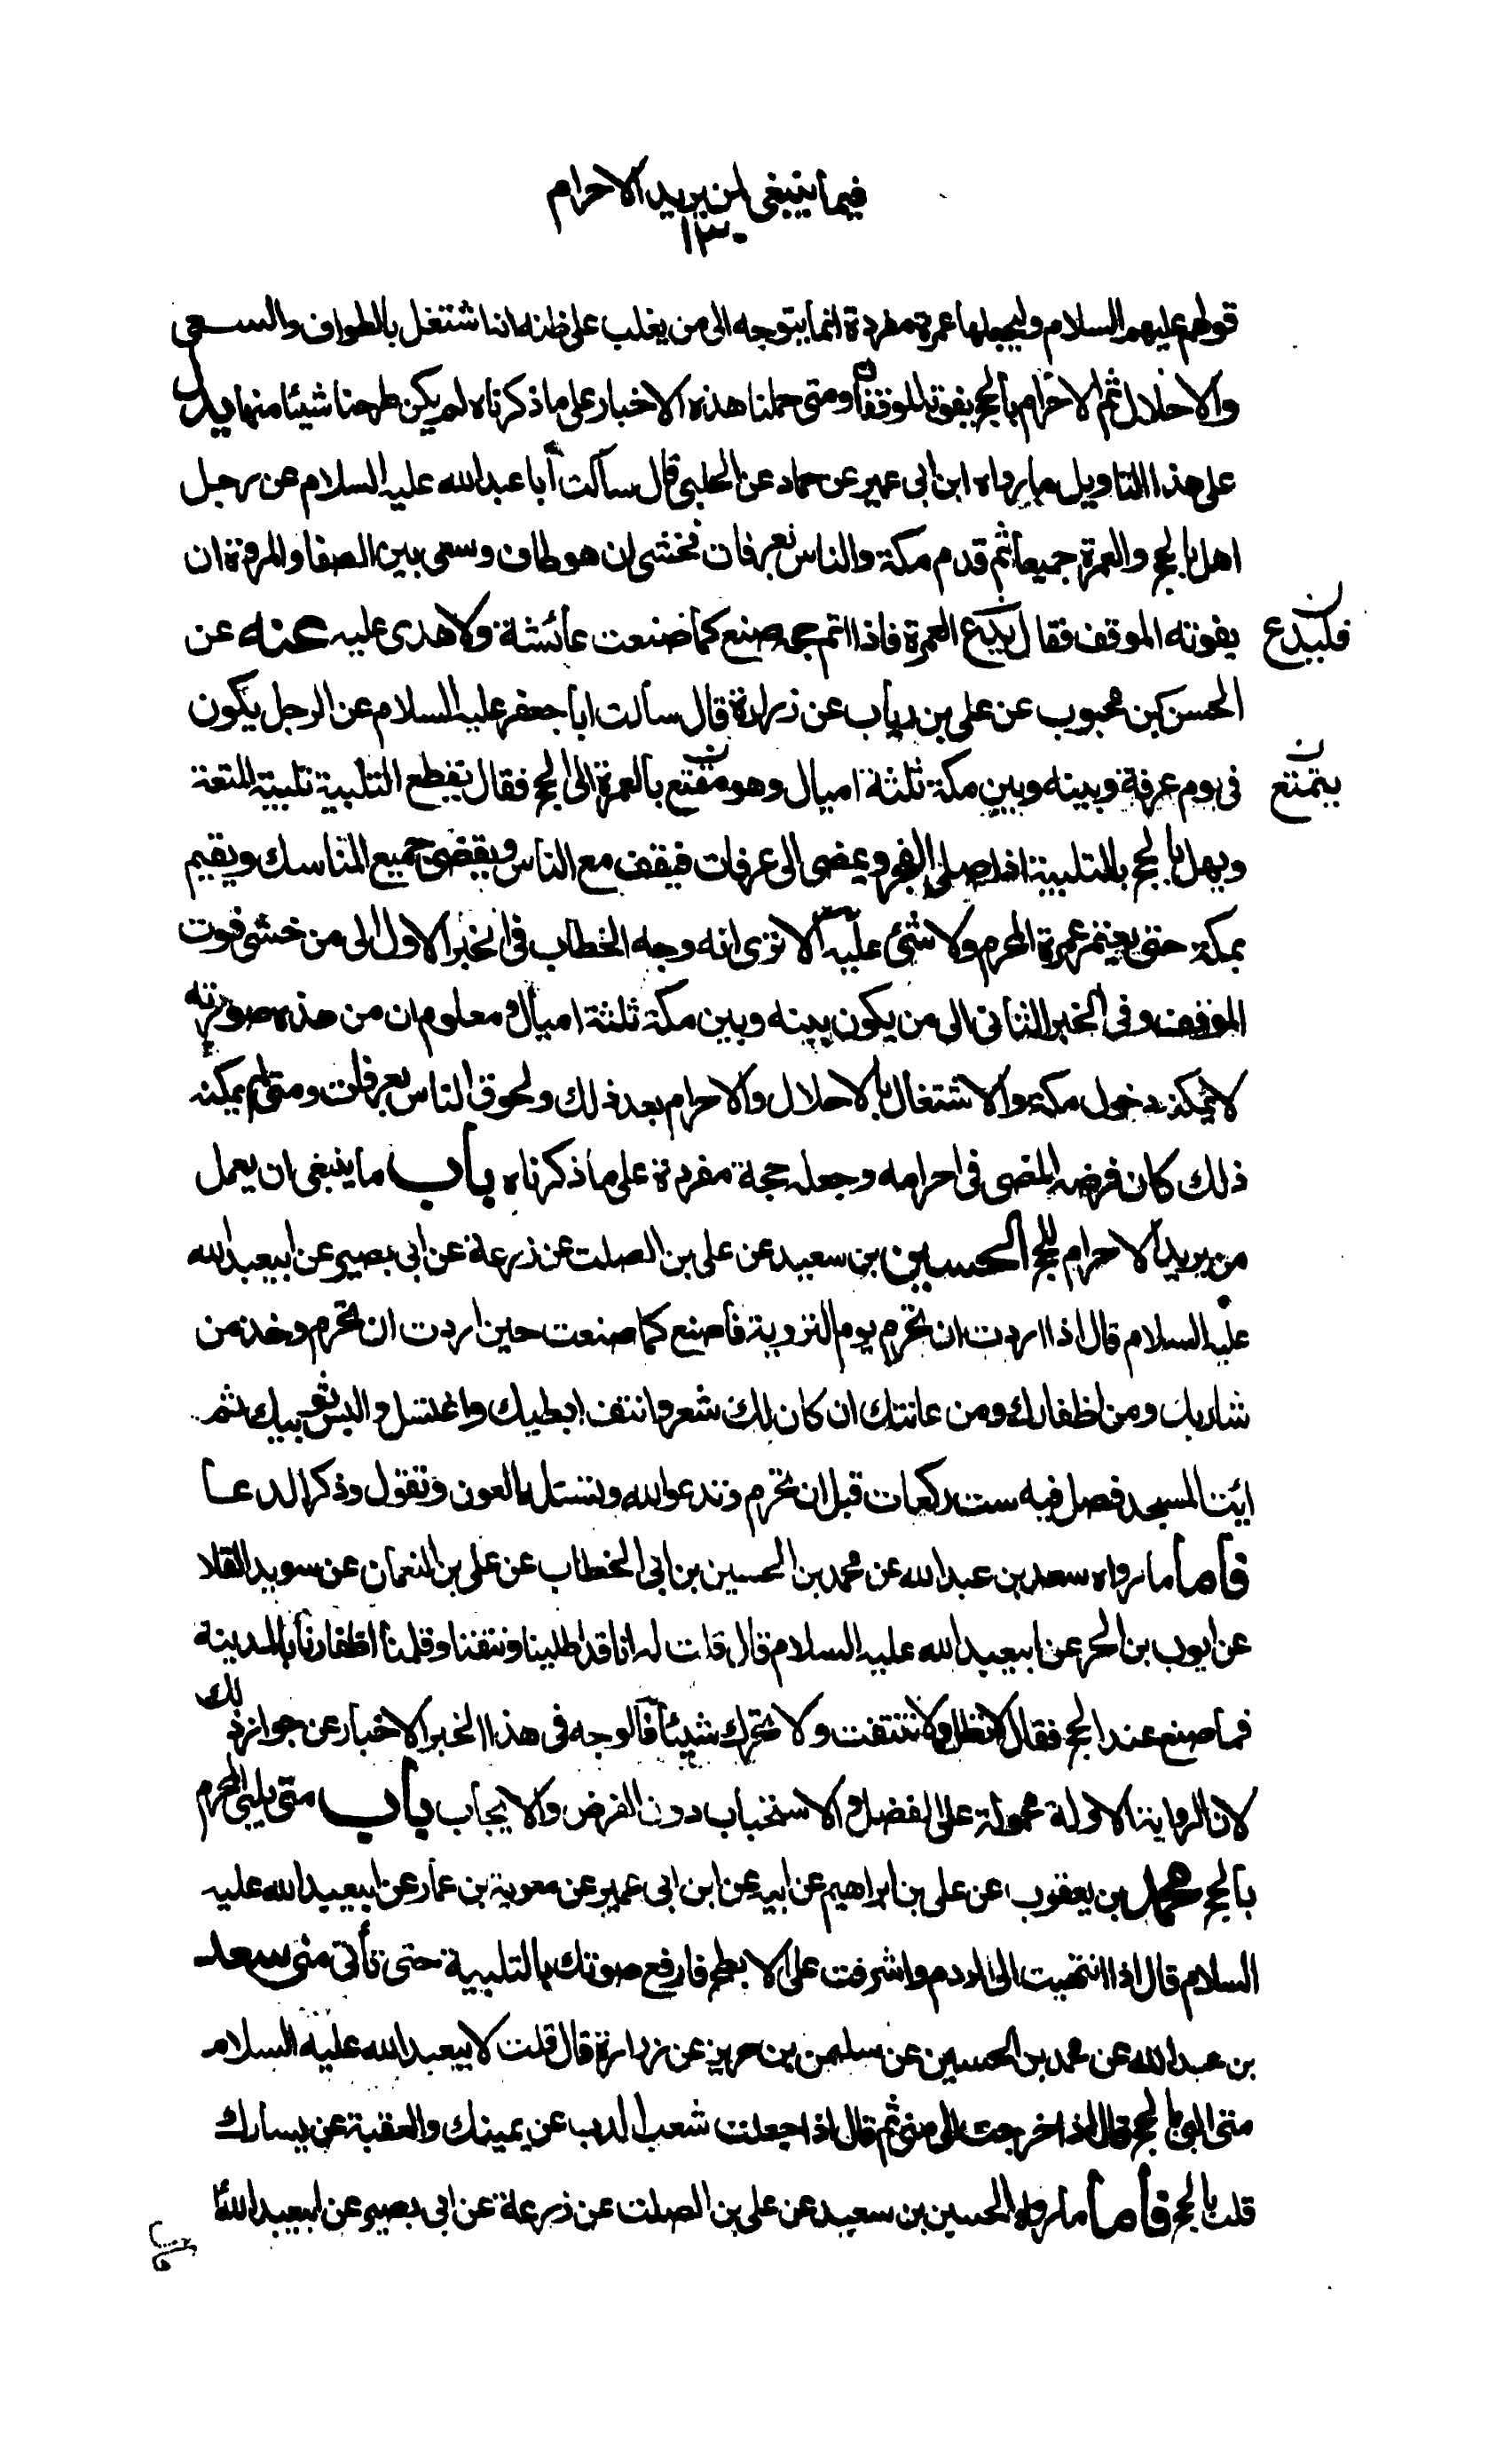 فيما ينبغى لمن يريد الاحرام
١٣٠
قولهم عليهم السلام وليجعلها عمرة مفردة انما يتوجه الى من يغلب على ظنه انه ان اشتغل بالطواف والسعى
والاحلال ثم الاحرام بالحج يفوته الموقفان ومتى حملنا هذه الاخبار على ما ذكرناه لم يكن طرحنا شيئا منها يدل
على هذا التاويل ما رواه ابن ابى عمير عن حماد عن الحلبى قال سألت أبا عبد الله عليه السلام عن رجل
اهل بالحج والعمرة جميعا ثم قدم مكة والناس بعرفات فخشى ان هو طاف وسعى بين الصفا والمروة ان
يفوته الموقف فقال يدع العمرة فاذا اتم حجه صنع كما صنعت عائشة ولا هدى عليه عنه عن
فليدع ن
الحسن بن محبوب عن على بن رياب عن زرارة قال سألت ابا جعفر عليه السلام عن الرجل يكون
فى يوم عرفة وبينه وبين مكة ثلثة اميال وهو متمتع بالعمرة الى الحج فقال يقطع التلبية تلبية المتعة
يتمتع ن
ويهل بالحج بالتلبية اذا صلى الفجر ويمضى الى عرفات فيقف مع الناس ويقضى جميع المناسك ويقيم
بمكة حتى يعتمر عمرة المحرم ولا شئ عليه ألا ترى انه وجه الخطاب فى الخبر الاول الى من خشى فوت
الموقف وفى الخبر الثانى الى من يكون بينه وبين مكة ثلثة اميال ومعلوم ان من هذه صورته
لا يمكنه دخول مكة والاشتغال بالاحلال والاحرام بعد ذلك ولحوق الناس بعرفات ومتى لم يمكنه
ذلك كان فرضه المضى فى احرامه وجعله حجة مفردة على ما ذكرناه باب ما ينبغى ان يعمل
من يريد الاحرام للحج الحسين بن سعيد عن على بن الصلت عن زرعة عن ابى بصير عن ابيعبد الله
عليه السلام قال اذا اردت ان تحرم يوم التروية فاصنع كما صنعت حين اردت ان تحرم وخذ من
شاربك ومن اظفارك ومن عانتك ان كان لك شعر وانتف ابطيك واغتسل والبس ثوبيك ثم
ايت المسجد فصل فيه ست ركعات قبل ان تحرم وتدعو الله وتسئله العون وتقول وذكر الدعا
فأما ما رواه سعد بن عبد الله عن محمد بن الحسين بن ابى الخطاب عن على بن النعمان عن سويد القلا
عن ايوب بن الحر عن ابيعبد الله عليه السلام قال قلت له انا قد اطلينا ونتفنا وقلمنا اظفارنا بالمدينة
فما صنع عند الحج فقال لا تطل ولا تنتف ولا تحرك شيئا فالوجه فى هذا الخبر الاخبار عن جواز ذلك
لان الرواية الاولة محمولة على الفضل والاستحباب دون الفرض والايجاب باب متى يلبى المحرم
بالحج محمد بن يعقوب عن على بن ابراهيم عن ابيه عن ابن ابى عمير عن معوية بن عمار عن ابيعبد الله عليه
السلام قال اذا انتهيت الى الردم واشرفت على الابطح فارفع صوتك بالتلبية حتى تأتى منى سعد
بن عبد الله عن محمد بن الحسين عن سليمن بن حريز عن زرارة قال قلت لابيعبد الله عليه السلام
متى البى بالحج قال اذا خرجت الى منى ثم قال اذا جعلت شعب الدب عن يمينك والعقبة عن يسارك
فلب بالحج فأما ما رواه الحسين بن سعيد عن على بن الصلت عن زرعة عن ابى بصير عن ابيعبد الله